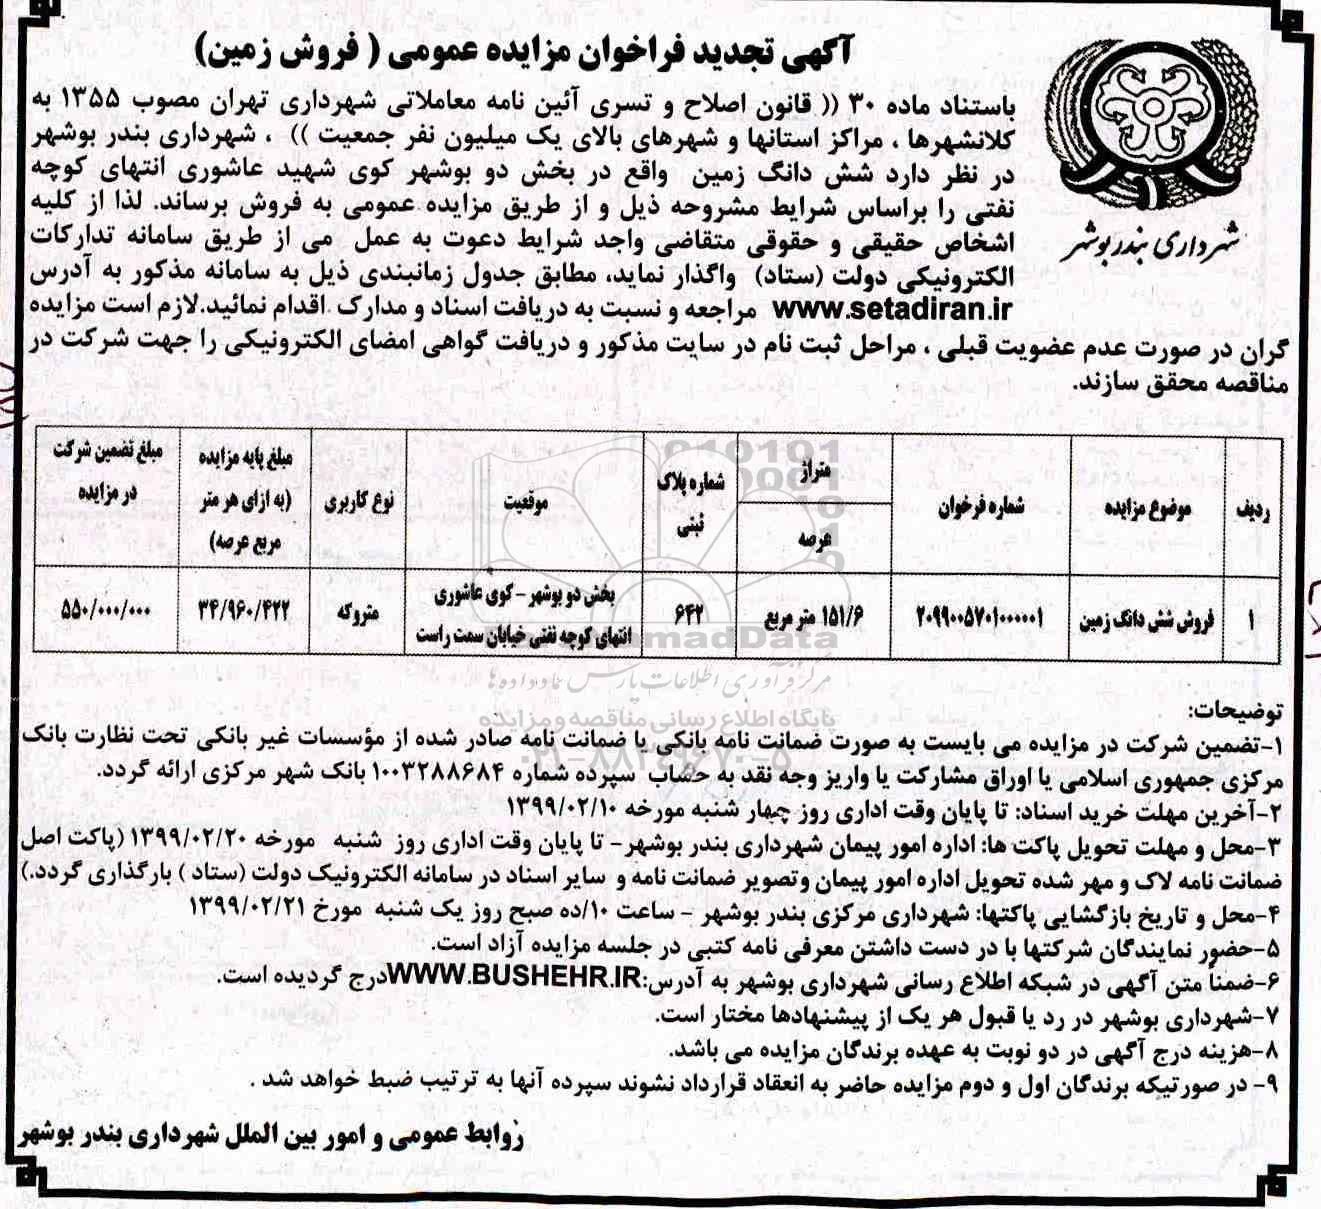 آگهی تجدید فراخوان مزایده عمومی ( فروش زمین)
شهرداری بندر بوشهر
باستناد ماده ۳۰ (( قانون اصلاح و تسری آئین نامه معاملاتی شهرداری تهران مصوب ۱۳۵۵ به
کلانشهرها ، مراکز استانها و شهرهای بالای یک میلیون نفر جمعیت )) ، شهرداری بندر بوشهر
در نظر دارد شش دانگ زمین واقع در بخش دو بوشهر کوی شهید عاشوری انتهای کوچه
نفتی را براساس شرایط مشروحه ذیل و از طریق مزایده عمومی به فروش برساند. لذا از کلیه
اشخاص حقیقی و حقوقی متقاضی واجد شرایط دعوت به عمل می از طریق سامانه تدارکات
الکترونیکی دولت (ستاد) واگذار نماید، مطابق جدول زمانبندی ذیل به سامانه مذکور به آدرس
www.setadiran.ir مراجعه و نسبت به دریافت اسناد و مدارک اقدام نمائید.لازم است مزایده
گران در صورت عدم عضویت قبلی ، مراحل ثبت نام در سایت مذکور و دریافت گواهی امضای الکترونیکی را جهت شرکت در
مناقصه محقق سازند.
ردیف | موضوع مزایده | شماره فرخوان | متراژ عرصه | شماره پلاک ثبتی | موقعیت | نوع کاربری | مبلغ پایه مزایده (به ازای هر متر مربع عرصه) | مبلغ تضمین شرکت در مزایده
۱ | فروش شش دانگ زمین | ۲۰۹۹۰۰۵۷۰۱۰۰۰۰۰۱ | ۱۵۱/۶ متر مربع | ۶۴۲ | بخش دو بوشهر - کوی عاشوری انتهای کوچه نفتی خیابان سمت راست | متروکه | ۳۴/۹۶۰/۴۲۲ | ۵۵۰/۰۰۰/۰۰۰
مرکز فرآوری اطلاعات پارس نماد داده ها
پایگاه اطلاع رسانی مناقصه و مزایده
۰۲۱-۸۸۳۴۹۶۷۰-۵
توضیحات:
۱-تضمین شرکت در مزایده می بایست به صورت ضمانت نامه بانکی یا ضمانت نامه صادر شده از مؤسسات غیر بانکی تحت نظارت بانک
مرکزی جمهوری اسلامی یا اوراق مشارکت یا واریز وجه نقد به حساب سپرده شماره ۱۰۰۳۲۸۸۶۸۴ بانک شهر مرکزی ارائه گردد.
۲-آخرین مهلت خرید اسناد: تا پایان وقت اداری روز چهار شنبه مورخه ۱۳۹۹/۰۲/۱۰
۳-محل و مهلت تحویل پاکت ها: اداره امور پیمان شهرداری بندر بوشهر- تا پایان وقت اداری روز شنبه مورخه ۱۳۹۹/۰۲/۲۰ (پاکت اصل
ضمانت نامه لاک و مهر شده تحویل اداره امور پیمان وتصویر ضمانت نامه و سایر اسناد در سامانه الکترونیک دولت (ستاد ) بارگذاری گردد.)
۴-محل و تاریخ بازگشایی پاکتها: شهرداری مرکزی بندر بوشهر - ساعت ۱۰/ده صبح روز یک شنبه مورخ ۱۳۹۹/۰۲/۲۱
۵-حضور نمایندگان شرکتها با در دست داشتن معرفی نامه کتبی در جلسه مزایده آزاد است.
۶-ضمناً متن آگهی در شبکه اطلاع رسانی شهرداری بوشهر به آدرس:WWW.BUSHEHR.IRدرج گردیده است.
۷-شهرداری بوشهر در رد یا قبول هر یک از پیشنهادها مختار است.
۸-هزینه درج آگهی در دو نوبت به عهده برندگان مزایده می باشد.
۹- در صورتیکه برندگان اول و دوم مزایده حاضر به انعقاد قرارداد نشوند سپرده آنها به ترتیب ضبط خواهد شد .
روابط عمومی و امور بین الملل شهرداری بندر بوشهر